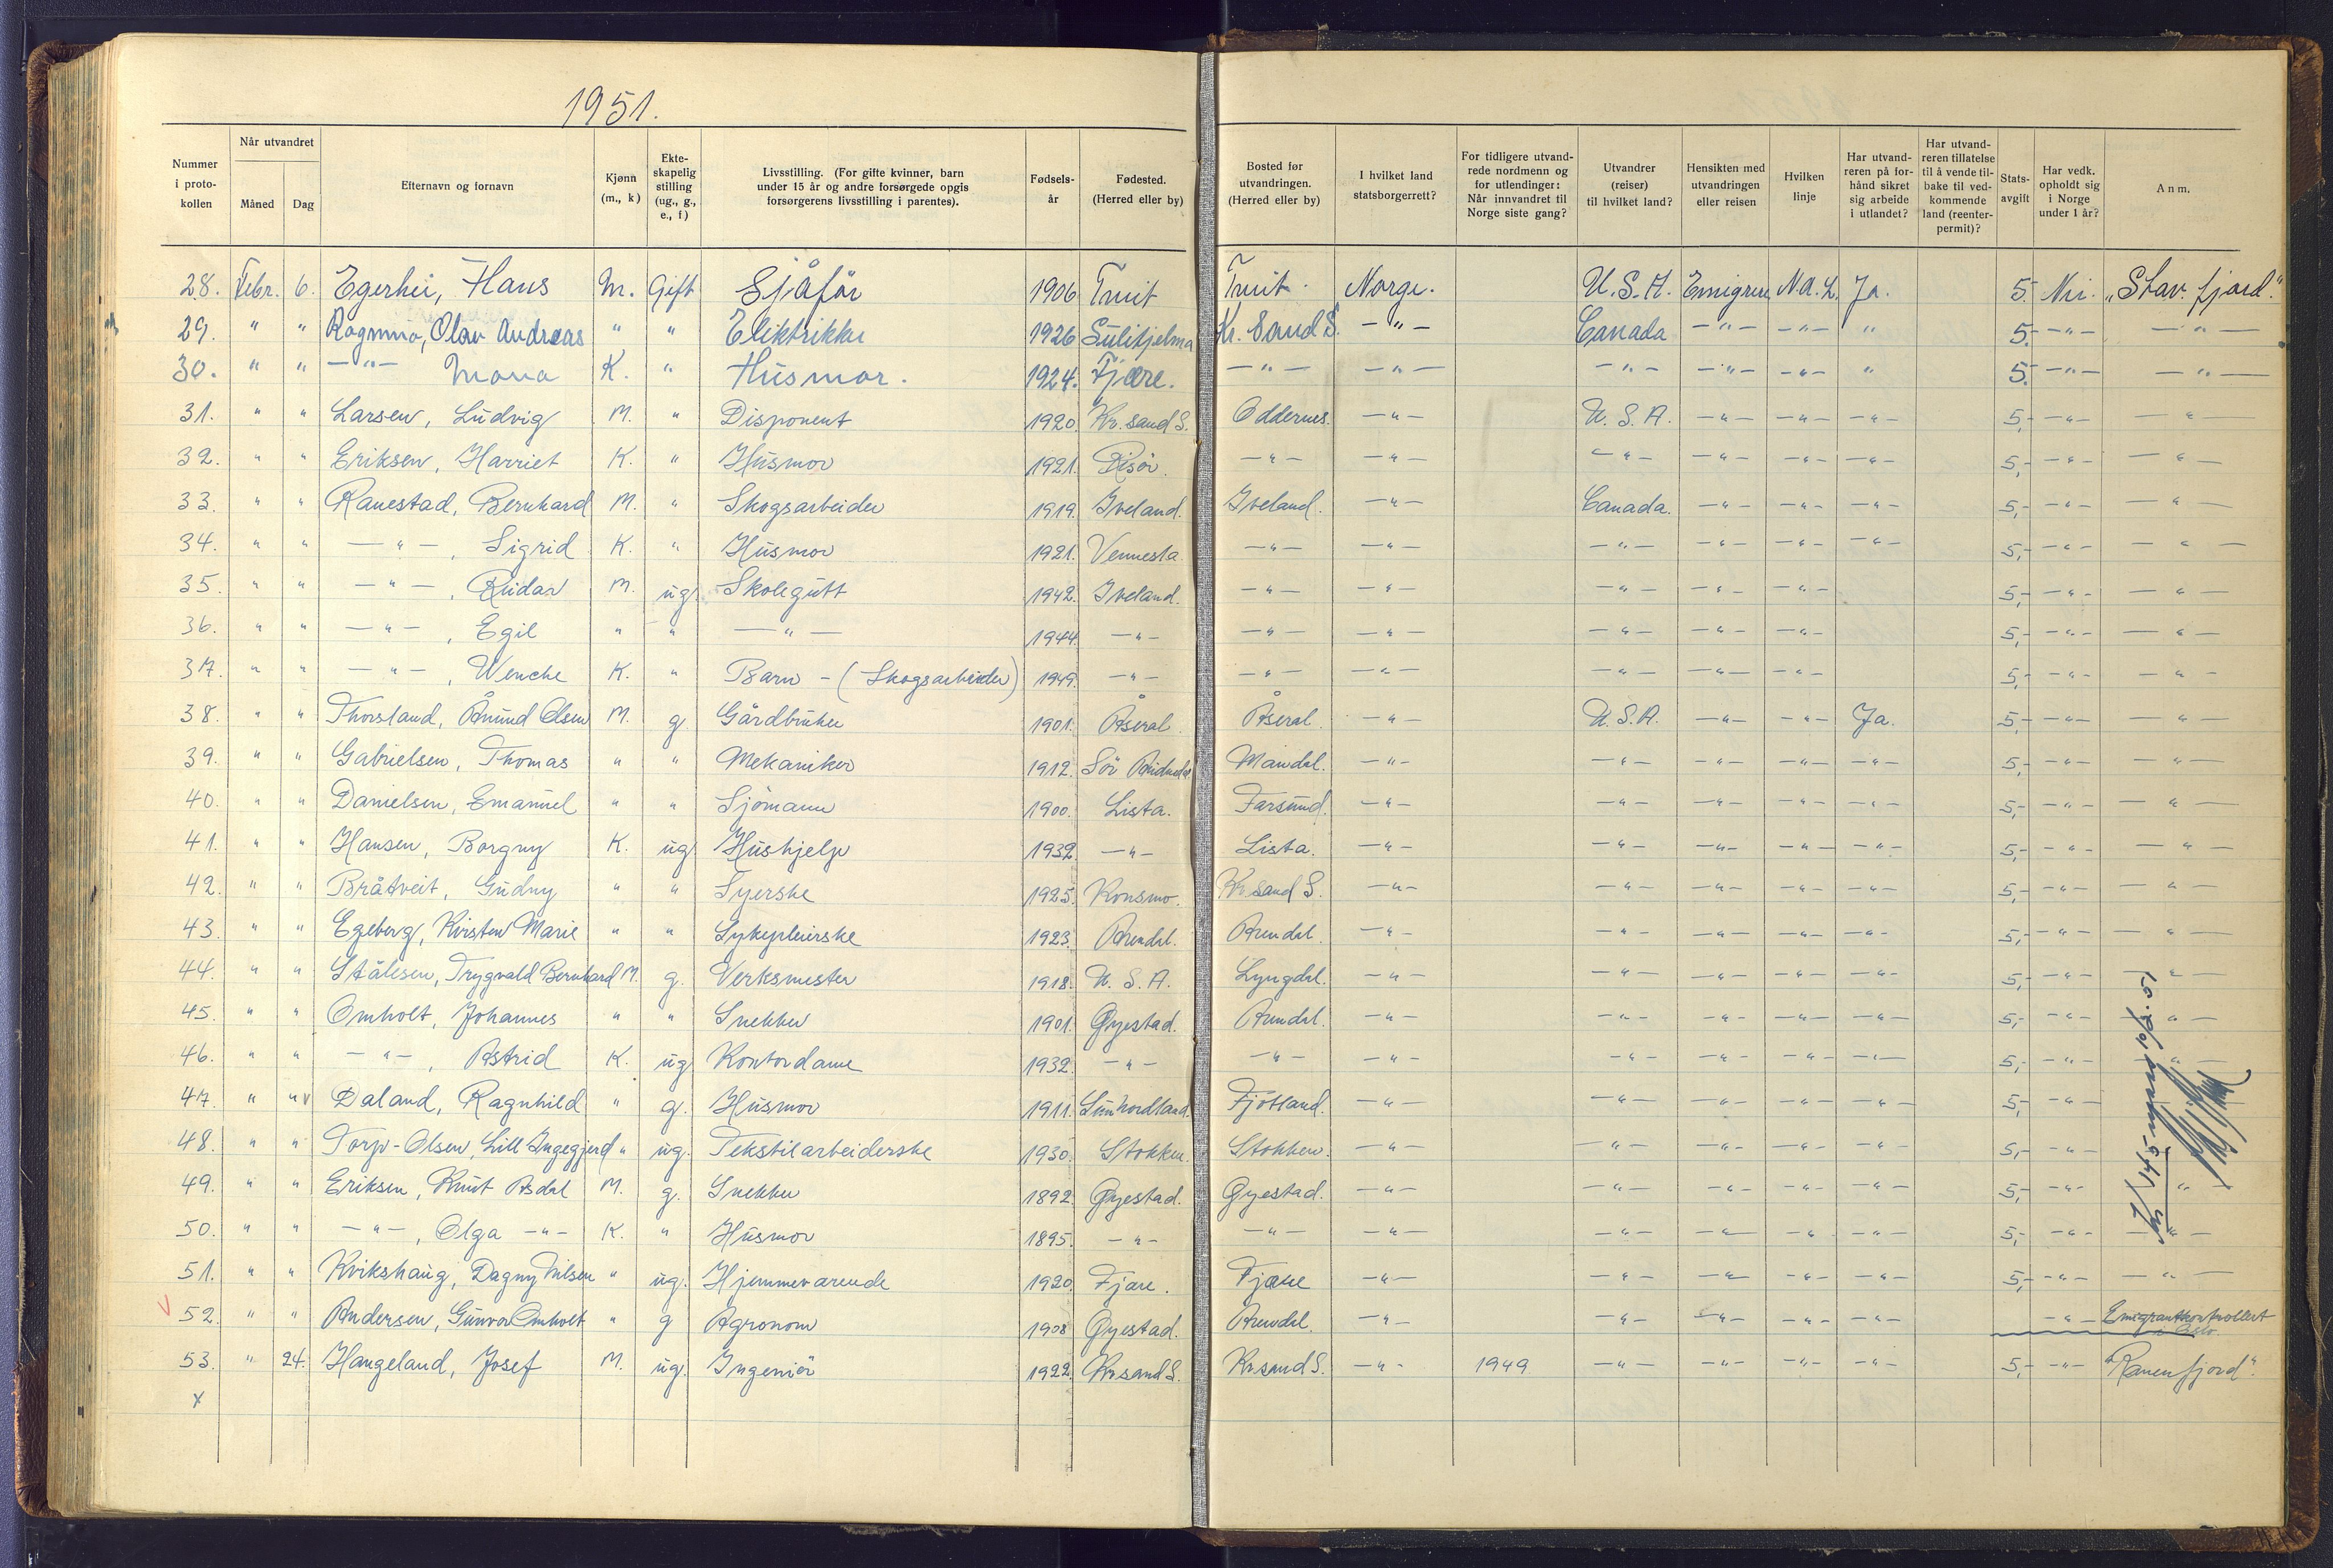 1951.
Nummer i proto- kollen | Når utvandret | Måned | Dag | Efternavn og fornavn | Kjønn (m., k) | Ekte- skapelig stilling (ug., g., e., f) | Livsstilling. (For gifte kvinner, barn under 15 år og andre forsørgede opgis forsørgerens livsstilling i parentes). | Fødsels- år | Fødested. (Herred eller by) | Bosted før utvandringen. (Herred eller by) | I hvilket land statsborgerrett? | For tidligere utvand- rede nordmenn og for utlendinger: Når innvandret til Norge siste gang? | Utvandrer (reiser) til hvilket land? | Hensikten med utvandringen eller reisen | Hvilken linje | Har utvand- reren på for- hånd sikret sig arbeide i utlandet? | Har utvand- reren tillatelse til å vende til- bake til ved- kommende land (reenter- permit)? | Stats- avgift | Har vedk. opholdt sig i Norge under 1 år? | Anm.
28. Febr. 6. Egerhei, Hans M. Gift Sjåför 1906 Tveit Tveit. Norge. U.S.A. N.A.L. Ja. 5. Nei. „Stav.fjord."
29. " " Olav Andreas " " Elektriker 1926 Sulitjelma Kr.sand S. —"— Canada —"— —"— " 5. —"— —"—
30. " " —"— K. " Husmor. 1924. Fjære. —"— —"— —"— —"— —"— " 5. —"— —"—
31. " " Larsen, Ludvig M. " Disponent 1920. Kr.sand S. Oddernes. —"— U.S.A. —"— —"— —"— 5,- —"— —"—
32. " " Eriksen, Harriet K. " Husmor 1921. Risör. —"— —"— —"— —"— —"— —"— 5,- —"— —"—
33. " " Ranestad, Bernhard M. " Skogsarbeider 1919. Iveland. Iveland. —"— Canada. —"— —"— —"— 5,- —"— —"—
34. " " —"—, Sigrid K. " Husmor 1921. Vennesla —"— —"— —"— —"— —"— —"— 5,- —"— —"—
35. " " —"—, Reidar M. ug. Skolegutt 1942. Iveland. —"— —"— —"— —"— —"— 5,- —"— —"—
36. " " —"—, Egil " " —"— 1944. —"— —"— —"— —"— —"— —"— 5,- —"— —"—
37. " " —"—, Wenche K. " Barn - (Skogsarbeider) 1949. —"— —"— —"— —"— —"— —"— 5,- —"— —"—
38. " " Thorsland, Ånund Olsen M. g. Gårdbruker 1901. Åseral. Åseral. —"— U.S.A. —"— —"— Ja. 5,- —"— —"—
39. " " Gabrielsen, Thomas " " Mekaniker 1912. Mandal. —"— —"— —"— —"— —"— 5,- —"— —"—
40. " " Danielsen, Emanuel " " Sjömann 1900. Lista. Farsund. —"— —"— —"— —"— —"— 5,- —"— —"—
41. " " Hansen, Borgny K. ug Hushjelp 1932. —"— Lista. —"— —"— —"— —"— —"— 5,- —"— —"—
42. " " Bråtveit, Gudny " " Syerske 1925. Konsmo. Kr.sand S. —"— —"— —"— —"— —"— 5,- —"— —"—
43. " " Egeberg, Kirsten Marie " " Sykepleierske 1923. Arendal. Arendal. —"— —"— —"— —"— —"— 5,- —"— —"—
44. " " Stålesen, Trygvald Bernhard M. g. Verksmester 1918. U.S.A. Lyngdal. —"— —"— —"— —"— —"— 5,- —"— —"—
45. " " Omholt, Johannes " " Snekker 1901. Øyestad. Arendal. —"— —"— —"— —"— —"— 5,- —"— —"—
46. " " —"—, Astrid K. ug Kontordame 1932. —"— —"— —"— —"— —"— —"— —"— 5,- —"— —"—
47. " " v Daland, Ragnhild " g. Husmor 1911. Fjotland. —"— —"— —"— —"— —"— 5,- —"—
48. " " Torp-Olsen, Lill Ingegjerd " ug. Tekstilarbeiderske 1930. Stokken. Stokken. —"— —"— —"— —"— —"— 5,- —"—
49. " " Eriksen, Knut Asdal M. g. Snekker 1892. Øyestad. Øyestad. —"— —"— —"— —"— —"— 5,- —"— "
50. " " —"—, Olga —"— K. " Husmor 1895. —"— —"— —"— —"— —"— —"— —"— 5,- —"— —"—
51. " " Kvikshaug, Dagny Nilsen " ug. Hjemmeværende 1920. Fjære. Fjære —"— —"— —"— —"— —"— 5,- —"— —"—
v 52. " " Andersen, Gunvor Omholt " g Agronom 1908 Øyestad. Arendal. —"— —"— —"— —"— —"— —"— Emigrantkontrollert Oslo.
53. " 24. Hangeland, Josef M. ug. Ingeniör 1922. Kr.sand S. Kr.sand S. —"— 1949 —"— —"— —"— —"— 5,- —"— "Ranenfjord".
x